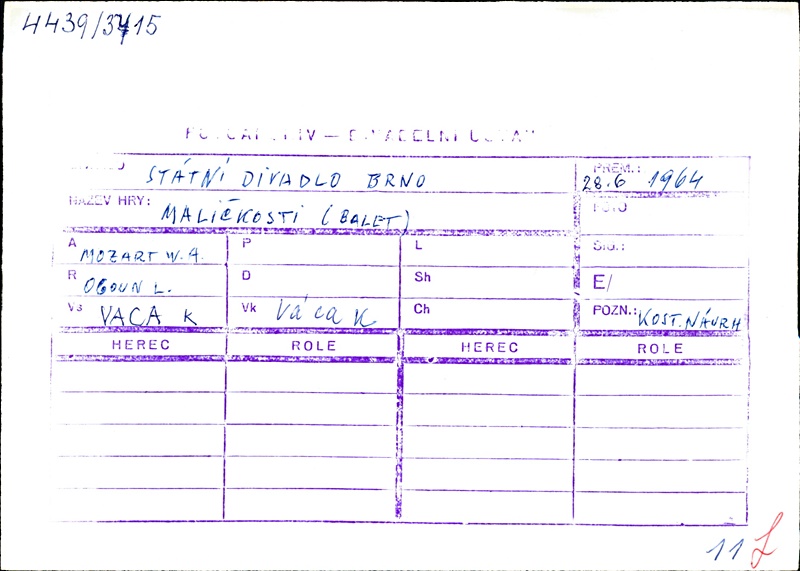 4439/3415
STÁTNÍ DIVADLO BRNO
PREM.:
28.6 1964
NÁZEV HRY: MALIČKOSTI (BALET)
FOTO
A MOZART W. A. P L SIG.:
R OGOUN L. D Sh E/
Vs VACA K Vk Váca K Ch POZN.: KOST. NÁVRH
HEREC ROLE HEREC ROLE
11